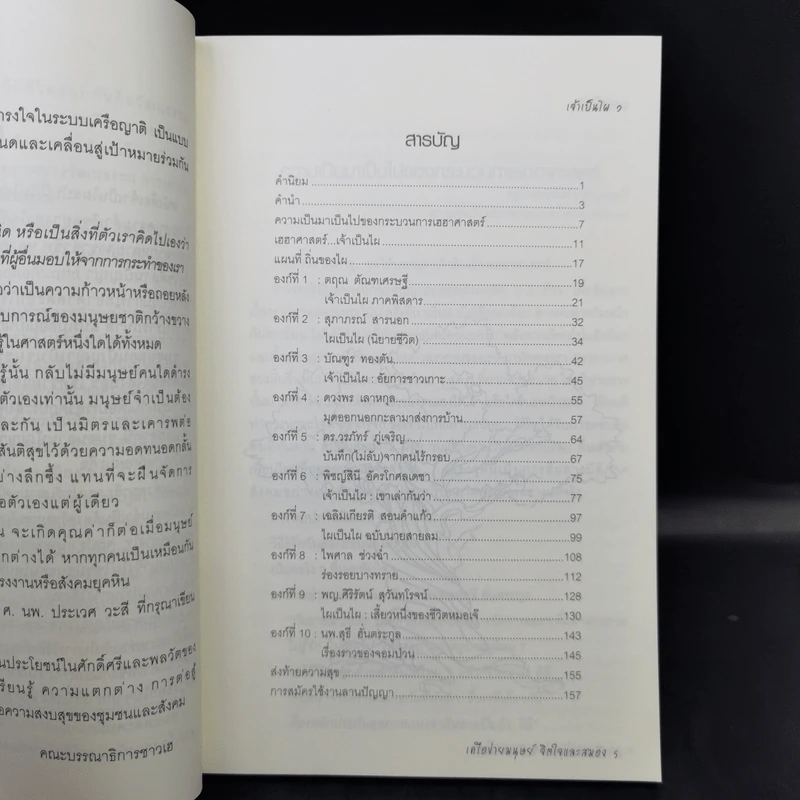 ารงใจในระบบเครือญาติ เป็นแบบ
นดและเคลื่อนสู่เป้าหมายร่วมกัน
ิด หรือเป็นสิ่งที่ตัวเราคิดไปเองว่า
ที่ผู้อื่นมอบให้จากการกระทำของเรา
อว่าเป็นความก้าวหน้าหรือถอยหลัง
บการณ์ของมนุษยชาติกว้างขวาง
รู้ในศาสตร์หนึ่งใดได้ทั้งหมด
รู้นั้น กลับไม่มีมนุษย์คนใดดำรง
ตัวเองเท่านั้น มนุษย์จำเป็นต้อง
ละกัน เป็นมิตรและเคารพต่อ
สันติสุขไว้ด้วยความอดทนอดกลั้น
ย่างลึกซึ้ง แทนที่จะฝืนจัดการ
อตัวเองแต่ผู้เดียว
น จะเกิดคุณค่าก็ต่อเมื่อมนุษย์
กต่างได้ หากทุกคนเป็นเหมือนกัน
รงงานหรือสังคมยุคหิน
ศ. นพ. ประเวศ วะสี ที่กรุณาเขียน
นประโยชน์ในศักดิ์ศรีและพลวัตของ
รียนรู้ ความแตกต่าง การต่อสู้
อความสงบสุขของชุมชนและสังคม
คณะบรรณาธิการชาวเฮ
เจ้าเป็นไผ ๑
สารบัญ
คำนิยม 1
คำนำ 3
ความเป็นมาเป็นไปของกระบวนการเฮฮาศาสตร์ 7
เฮฮาศาสตร์...เจ้าเป็นไผ 11
แผนที่ ถิ่นของไผ 17
องก์ที่ 1 : ตฤณ ตัณฑเศรษฐี 19
เจ้าเป็นไผ ภาคพิสดาร 21
องก์ที่ 2 : สุภาภรณ์ สารนอก 32
ไผเป็นไผ (นิยายชีวิต) 34
องก์ที่ 3 : บัณฑูร ทองตัน 42
เจ้าเป็นไผ : อัยการชาวเกาะ 45
องก์ที่ 4 : ดวงพร เลาหกุล 55
มุดออกนอกกะลามาส่งการบ้าน 57
องก์ที่ 5 : ดร.วรภัทร์ ภู่เจริญ 64
บันทึก(ไม่ลับ)จากคนไร้กรอบ 67
องก์ที่ 6 : พิชญ์สินี อัครโกศลเดชา 75
เจ้าเป็นไผ : เขาเล่ากันว่า 77
องก์ที่ 7 : เฉลิมเกียรติ สอนคำแก้ว 97
ไผเป็นไผ ฉบับนายสายลม 99
องก์ที่ 8 : ไพศาล ช่วงฉ่ำ 108
ร่องรอยบางทราย 112
องก์ที่ 9 : พญ.ศิริรัตน์ สุวันทโรจน์ 128
ไผเป็นไผ : เสี้ยวหนึ่งของชีวิตหมอเจ๊ 130
องก์ที่ 10 : นพ.สุธี ฮั่นตระกูล 143
เรื่องราวของจอมป่วน 145
ส่งท้ายความสุข 155
การสมัครใช้งานลานปัญญา 157
เครือข่ายมนุษย์ จิตใจและสมอง 5